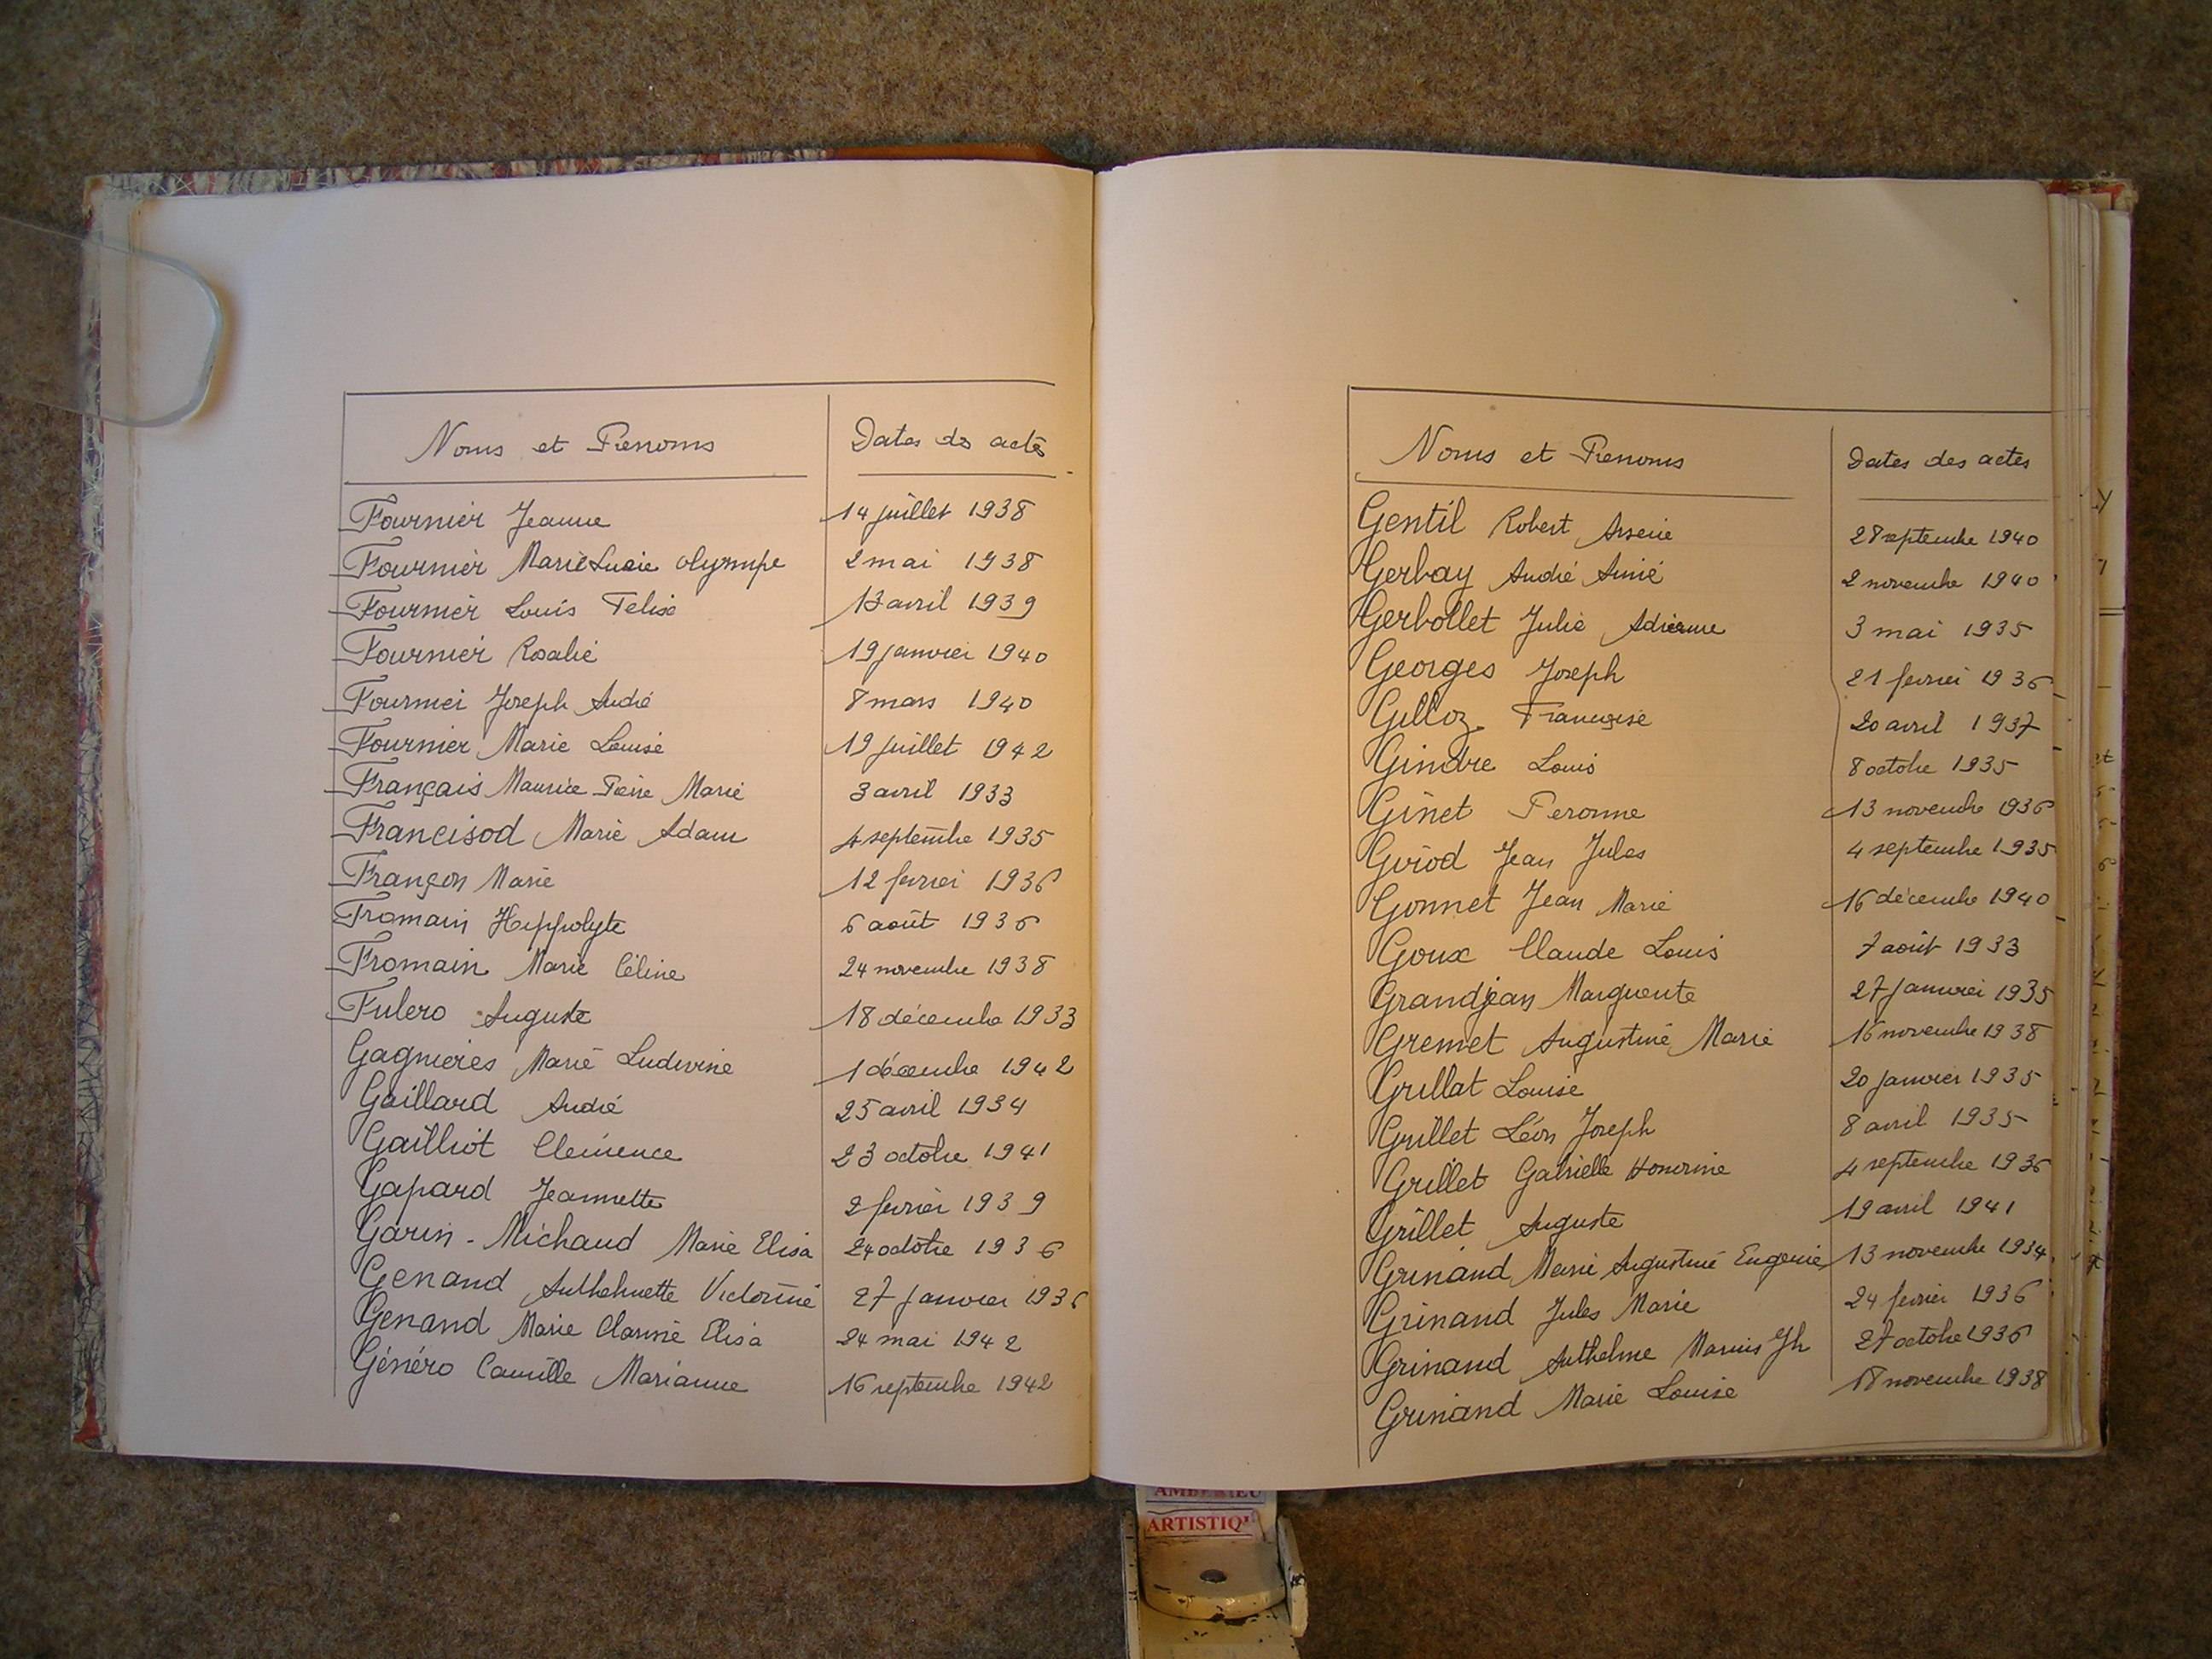 Noms et Prenoms Dates des actes
Fournier Jeanne 14 juillet 1938
Fournier Marie Lucie Olympe 2 mai 1938
Fournier Louis Felise 13 avril 1939
Fournier Rosalie 19 janvier 1940
Fournier Joseph André 8 mars 1940
Fournier Marie Louise 19 juillet 1942
Français Maurice Pierre Marie 3 avril 1933
Francisod Marie Adam 4 septembre 1935
Françon Marie 12 fevrier 1936
Fromain Hippolyte 6 août 1936
Fromain Marie Céline 24 novembre 1938
Fulero Auguste 18 décembre 1933
Gagnieres Marie Ludivine 1 décembre 1942
Gaillard André 25 avril 1934
Gailliot Clémence 23 octobre 1941
Gapard Jeannette 2 fevrier 1939
Garin - Michaud Marie Elisa 24 octobre 1936
Genand Anthelmette Victorine 27 janvier 1936
Genand Marie Clarine Elisa 24 mai 1942
Généro Camille Marianne 16 septembre 1942
Noms et Prenoms Dates des actes
Gentil Robert Arsene 28 septembre 1940
Gerbay André Aimé 2 novembre 1940
Gerbollet Julie Adrienne 3 mai 1935
Georges Joseph 21 fevrier 1936
Gilloz Françoise 20 avril 1937
Gindre Louis 8 octobre 1935
Ginet Peronne 13 novembre 1936
Girod Jean Jules 4 septembre 1935
Gonnet Jean Marie 16 décembre 1940
Goux Claude Louis 7 août 1933
Grandjean Marguerite 27 janvier 1935
Gremet Augustine Marie 16 novembre 1938
Grillat Louise 20 janvier 1935
Grillet Léon Joseph 8 avril 1935
Grillet Gabrielle Honorine 4 septembre 1936
Grillet Auguste 19 avril 1941
Grinand Marie Augustine Eugenie 13 novembre 1934
Grinand Jules Marie 24 fevrier 1936
Grinand Anthelme Marius Jh 27 octobre 1936
Grinand Marie Louise 18 novembre 1938
ARTISTIQ